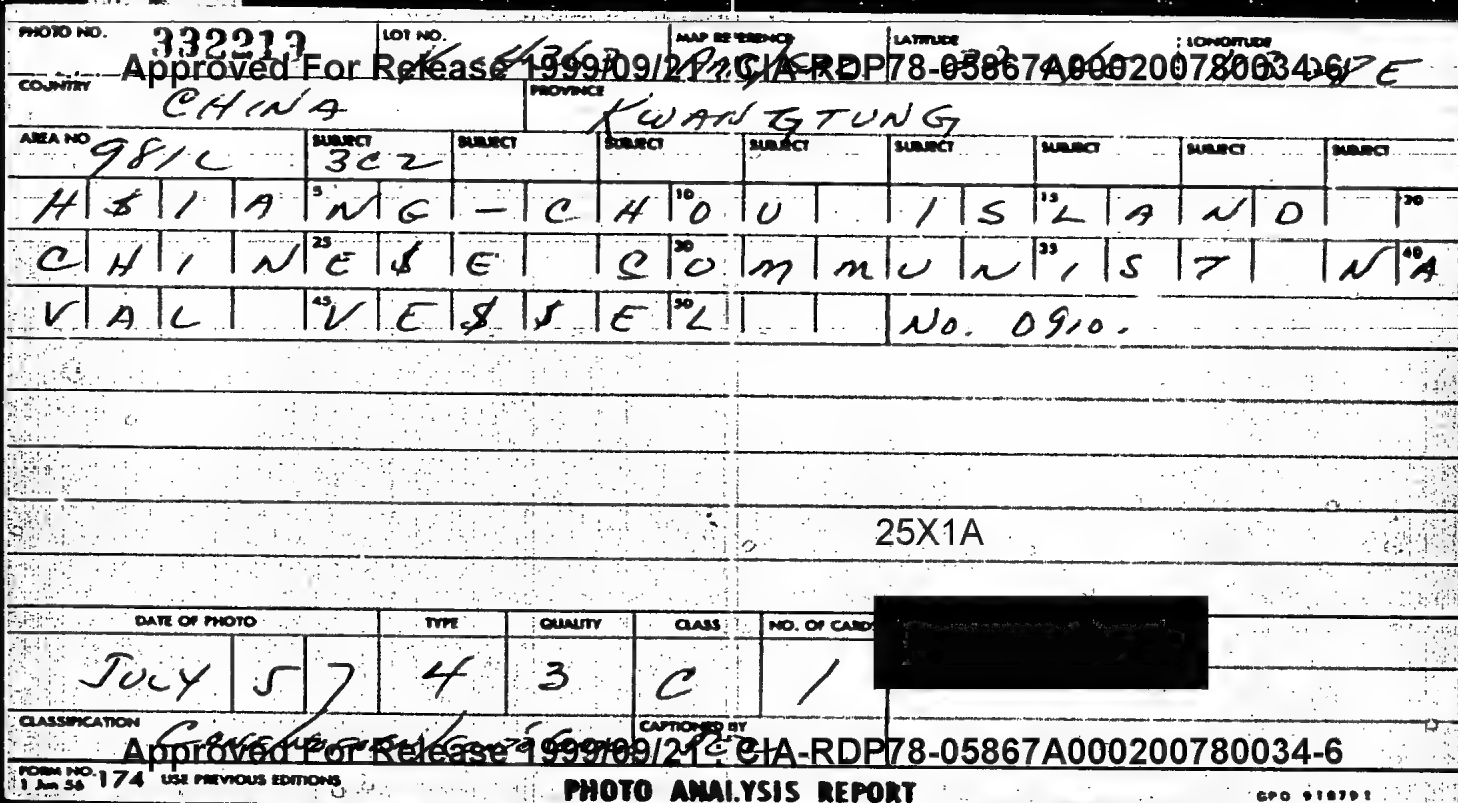 PHOTO NO. 332213 LOT NO. MAP REFERENCE LATITUDE LONGITUDE
Approved For Release 1999/09/21 : CIA-RDP78-05867A000200780034-6
COUNTRY CHINA PROVINCE KWANGTUNG
AREA NO 981L SUBJECT 3C2 SUBJECT SUBJECT SUBJECT SUBJECT SUBJECT SUBJECT SUBJECT
H$IA 5 NG-CH 10 OU IS 15 LAND 20
CHIN 25 E$E C 30 OMMUN 35 IST NA 40
VAL 45 VE$$E 50 L No. 0910.
25X1A
DATE OF PHOTO TYPE QUALITY CLASS NO. OF CARDS
JULY 57 4 3 C 1
CLASSIFICATION CAPTIONED BY
Approved For Release 1999/09/21 : CIA-RDP78-05867A000200780034-6
FORM NO. 174 USE PREVIOUS EDITIONS
1 Jun 56
PHOTO ANALYSIS REPORT